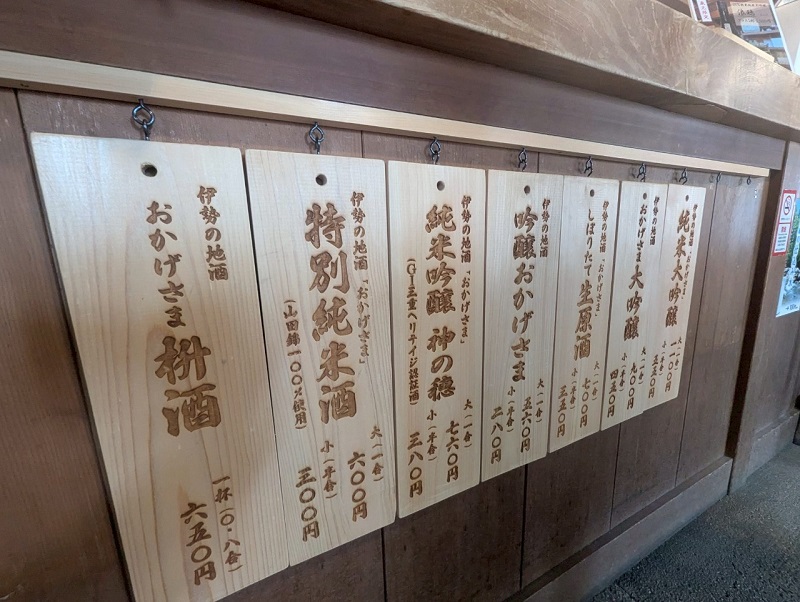 伊勢の地酒「おかげさま」
純米大吟醸
大(一合)
一一〇〇円
小(半合)
五五〇円
伊勢の地酒
おかげさま 大吟醸
大(一合)
九〇〇円
小(半合)
四五〇円
伊勢の地酒「おかげさま」
しぼりたて生原酒
大(一合)
七〇〇円
小(半合)
三五〇円
伊勢の地酒
吟醸おかげさま
大(一合)
五六〇円
小(半合)
二八〇円
伊勢の地酒「おかげさま」
純米吟醸 神の穂
(GI三重ヘリテイジ認証酒)
大(一合)
七六〇円
小(半合)
三八〇円
伊勢の地酒「おかげさま」
特別純米酒
(山田錦一〇〇%使用)
大(一合)
六〇〇円
小(半合)
三〇〇円
伊勢の地酒
おかげさま 枡酒
一杯(〇・八合)
六五〇円